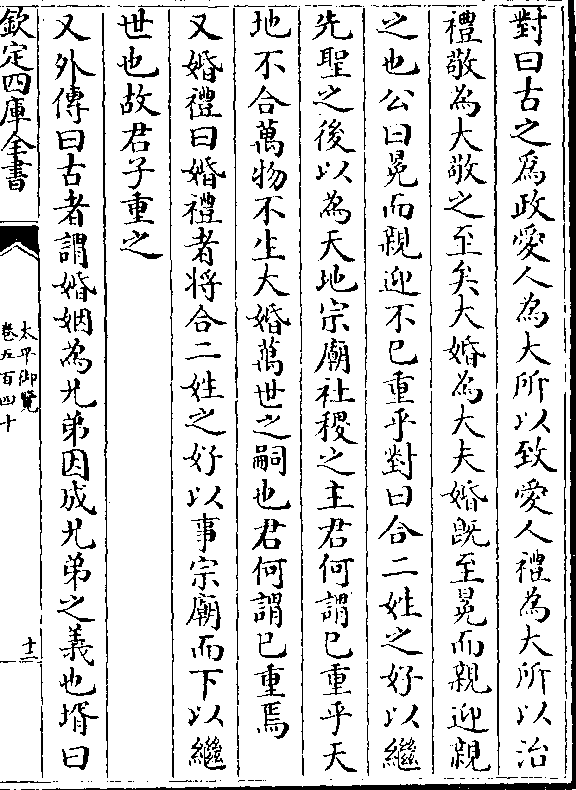 對曰古之爲政愛人為大所以致愛人禮為大所以治
禮敬為大敬之至矣大婚為大夫婚既至冕而親迎親
之也公曰冕而親迎不已重乎對曰合二姓之好以繼
先聖之後以為天地宗廟社稷之主君何謂已重乎天
地不合萬物不生大婚萬世之嗣也君何謂已重焉
又婚禮曰婚禮者将合二姓之好以事宗廟而下以繼
世也故君子重之
又外傳曰古者謂婚姻為兄弟因成兄弟之義也壻曰
欽定四庫全書
太平御覽
卷五百四十
十三